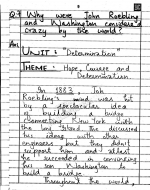 Q.7 Why were John Roebling
and Washington considered
crazy by the world?
Ans
UNIT : "Determination"
THEME : Hope, Courage and
Determination
In 1883, John
Roebling's mind was hit
by a spectacular idea
of building a bridge
connecting New York with
the Long Island. He discussed
his idea with other
engineers but they didn't
support him and atlast
he succeeded in convincing
his son Washington to
build a bridge.
Throughout the world,